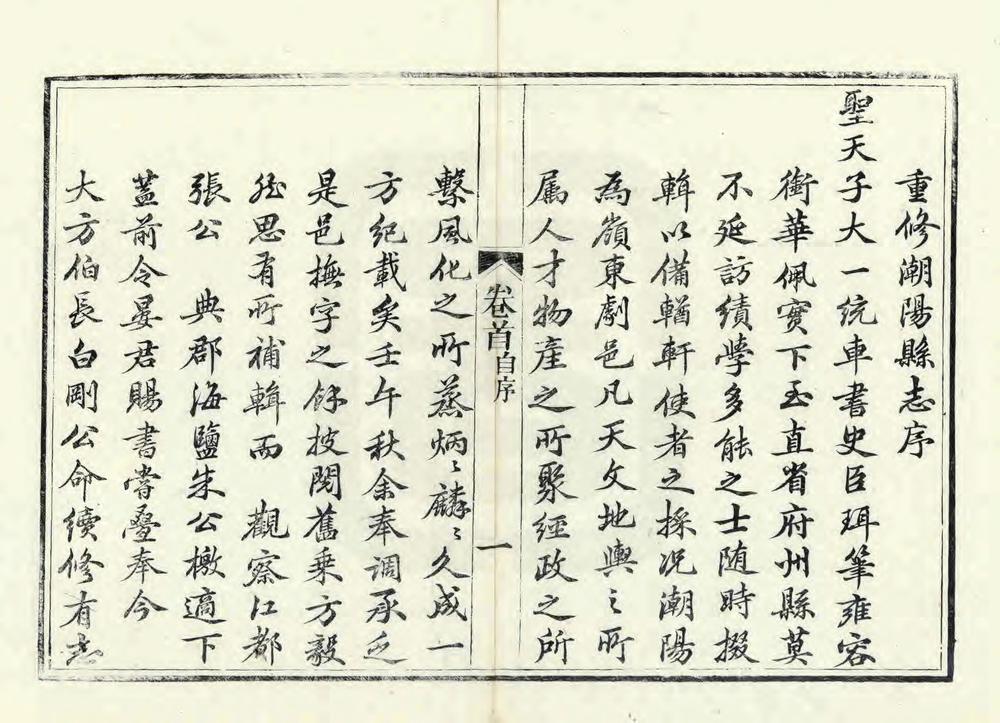 重修潮陽縣志序
聖天子大一統車書史臣珥筆雍容
衢華佩實下至直省府州縣莫
不延訪績學多能之士随時掇
輯以備輶軒使者之採况潮陽
為嶺東劇邑凡天文地輿之所
属人才物產之所聚經政之所
卷首自序
一
繫風化之所蒸炳〻麟〻久成一
方紀載矣壬午秋余奉調承乏
是邑撫字之餘披閱舊乗方毅
然思有所補輯而 觀察江都
張公 典郡海鹽朱公檄適下
蓋前令晏君賜書嘗疊奉今
大方伯長白剛公命續修有志